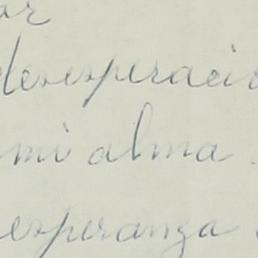 or
desesperació
mi alma
esperanza